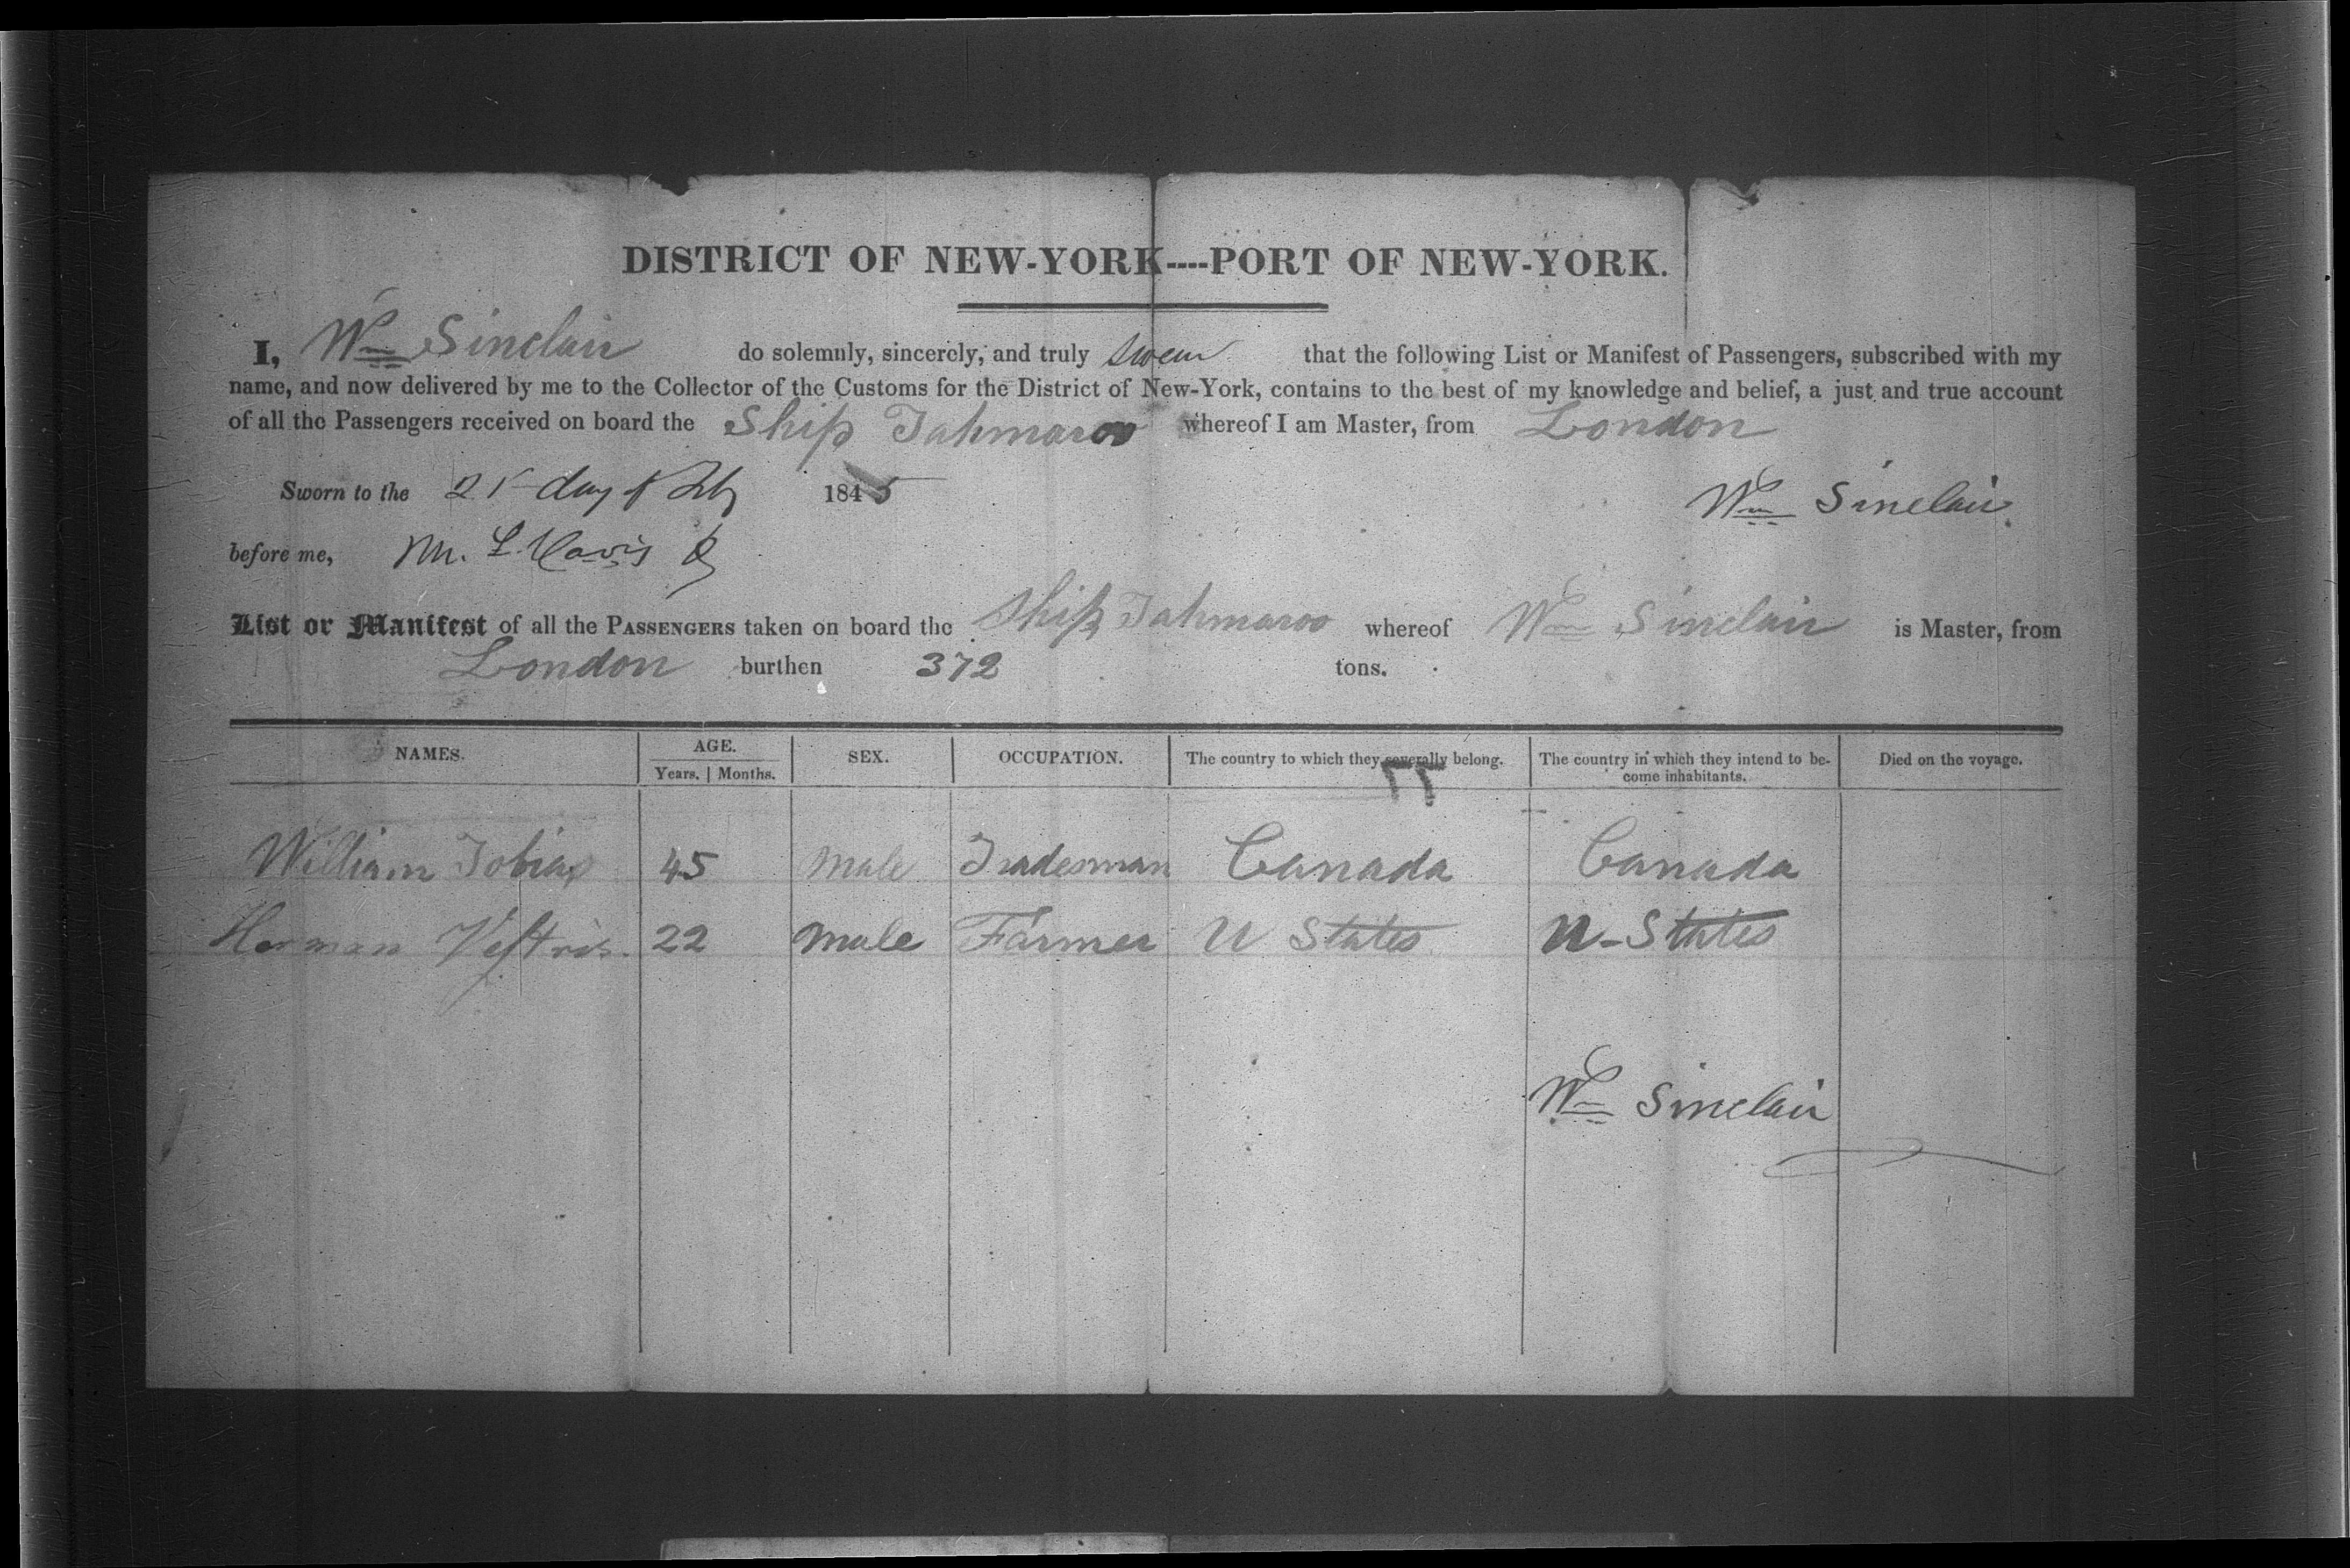 DISTRICT OF NEW-YORK----PORT OF NEW-YORK.
I, Wm Sinclair do solemnly, sincerely, and truly swear that the following List or Manifest of Passengers, subscribed with my
name, and now delivered by me to the Collector of the Customs for the District of New-York, contains to the best of my knowledge and belief, a just and true account
of all the Passengers received on board the Ship Tahmaroo whereof I am Master, from London
Sworn to the 21 day of Feby 1845 Wm Sinclair
before me, M. L. Davis
List or Manifest of all the PASSENGERS taken on board the Ship Tahmaroo whereof Wm Sinclair is Master, from
London burthen 372 tons.
NAMES. AGE. Years. | Months. SEX. OCCUPATION. The country to which they severally belong. The country in which they intend to be-
come inhabitants. Died on the voyage.
77
William Tobias 45 Male Tradesman Canada Canada
Herman Vestris. 22 Male Farmer U States U-States
Wm Sinclair